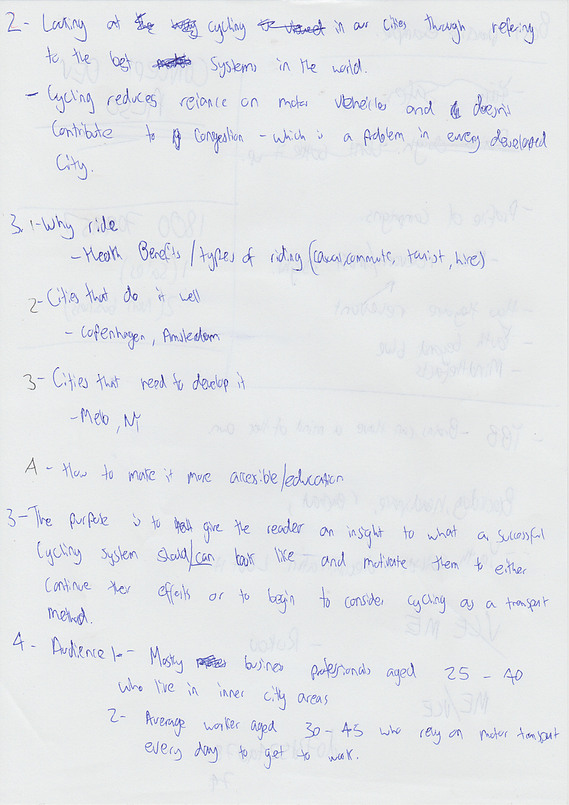 2 - Looking at cycling in our cities through refering
to the best systems in the world.
- Cycling reduces reliance on motor vehicles and doesn't
contribute to congestion - which is a problem in every developed
City.
3. 1 - Why ride
- Health Benefits / types of riding (casual, commute, tourist, hire)
2 - Cities that do it well
- Copenhagen, Amsterdam
3 - Cities that need to develop it
- Melb, NY
4 - How to make it more accesible/education
3 - The purpose is to give the reader an insight to what a successful
Cycling system should/can look like - and motivate them to either
continue their efforts or to begin to consider cycling as a transport
method.
4 - Audience 1 - Mostly business professionals aged 25 - 40
who live in inner city areas
2 - Average worker aged 30 - 45 who rely on motor transport
every day to get to work.